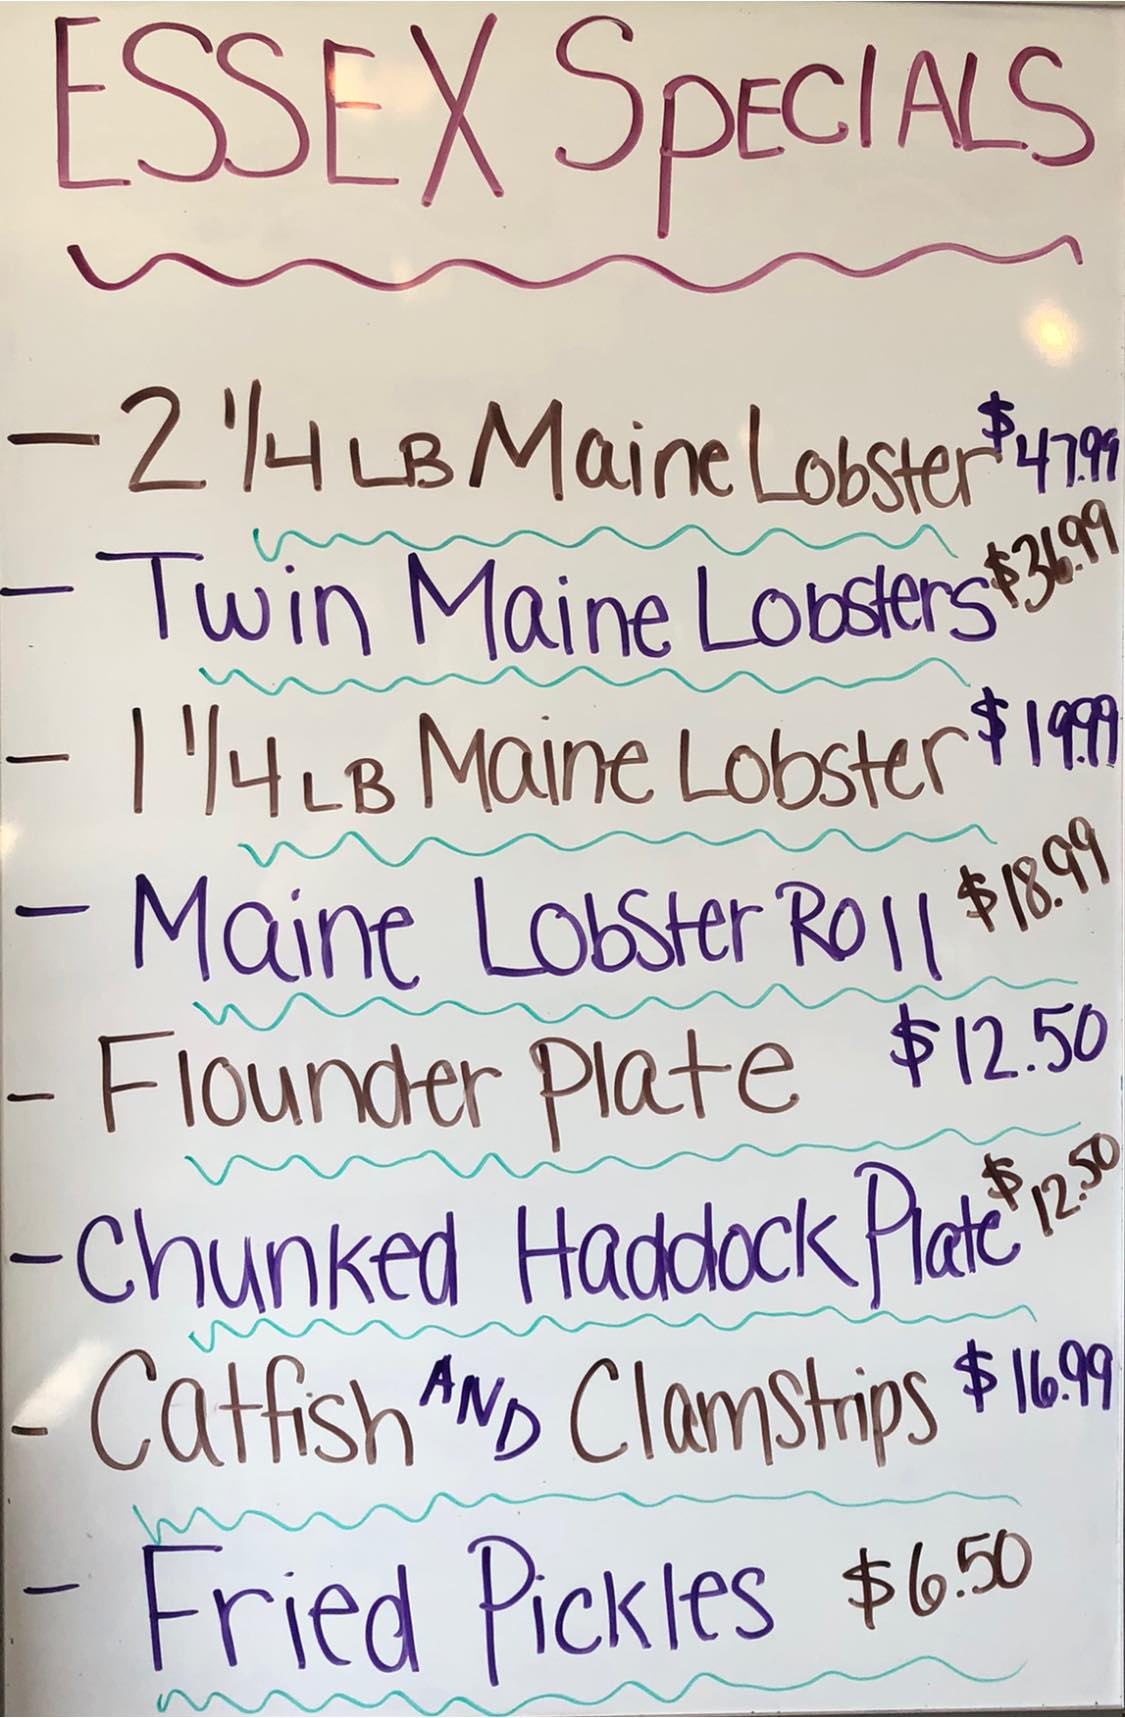 ESSEX SpECIALS
- 2 1/4 LB Maine Lobster $47.99
- Twin Maine Lobsters $36.99
- 1 1/4 LB Maine Lobster $19.99
- Maine Lobster Roll $18.99
- Flounder plate $12.50
- Chunked Haddock Plate $12.50
- Catfish AND Clamstrips $16.99
- Fried Pickles $6.50